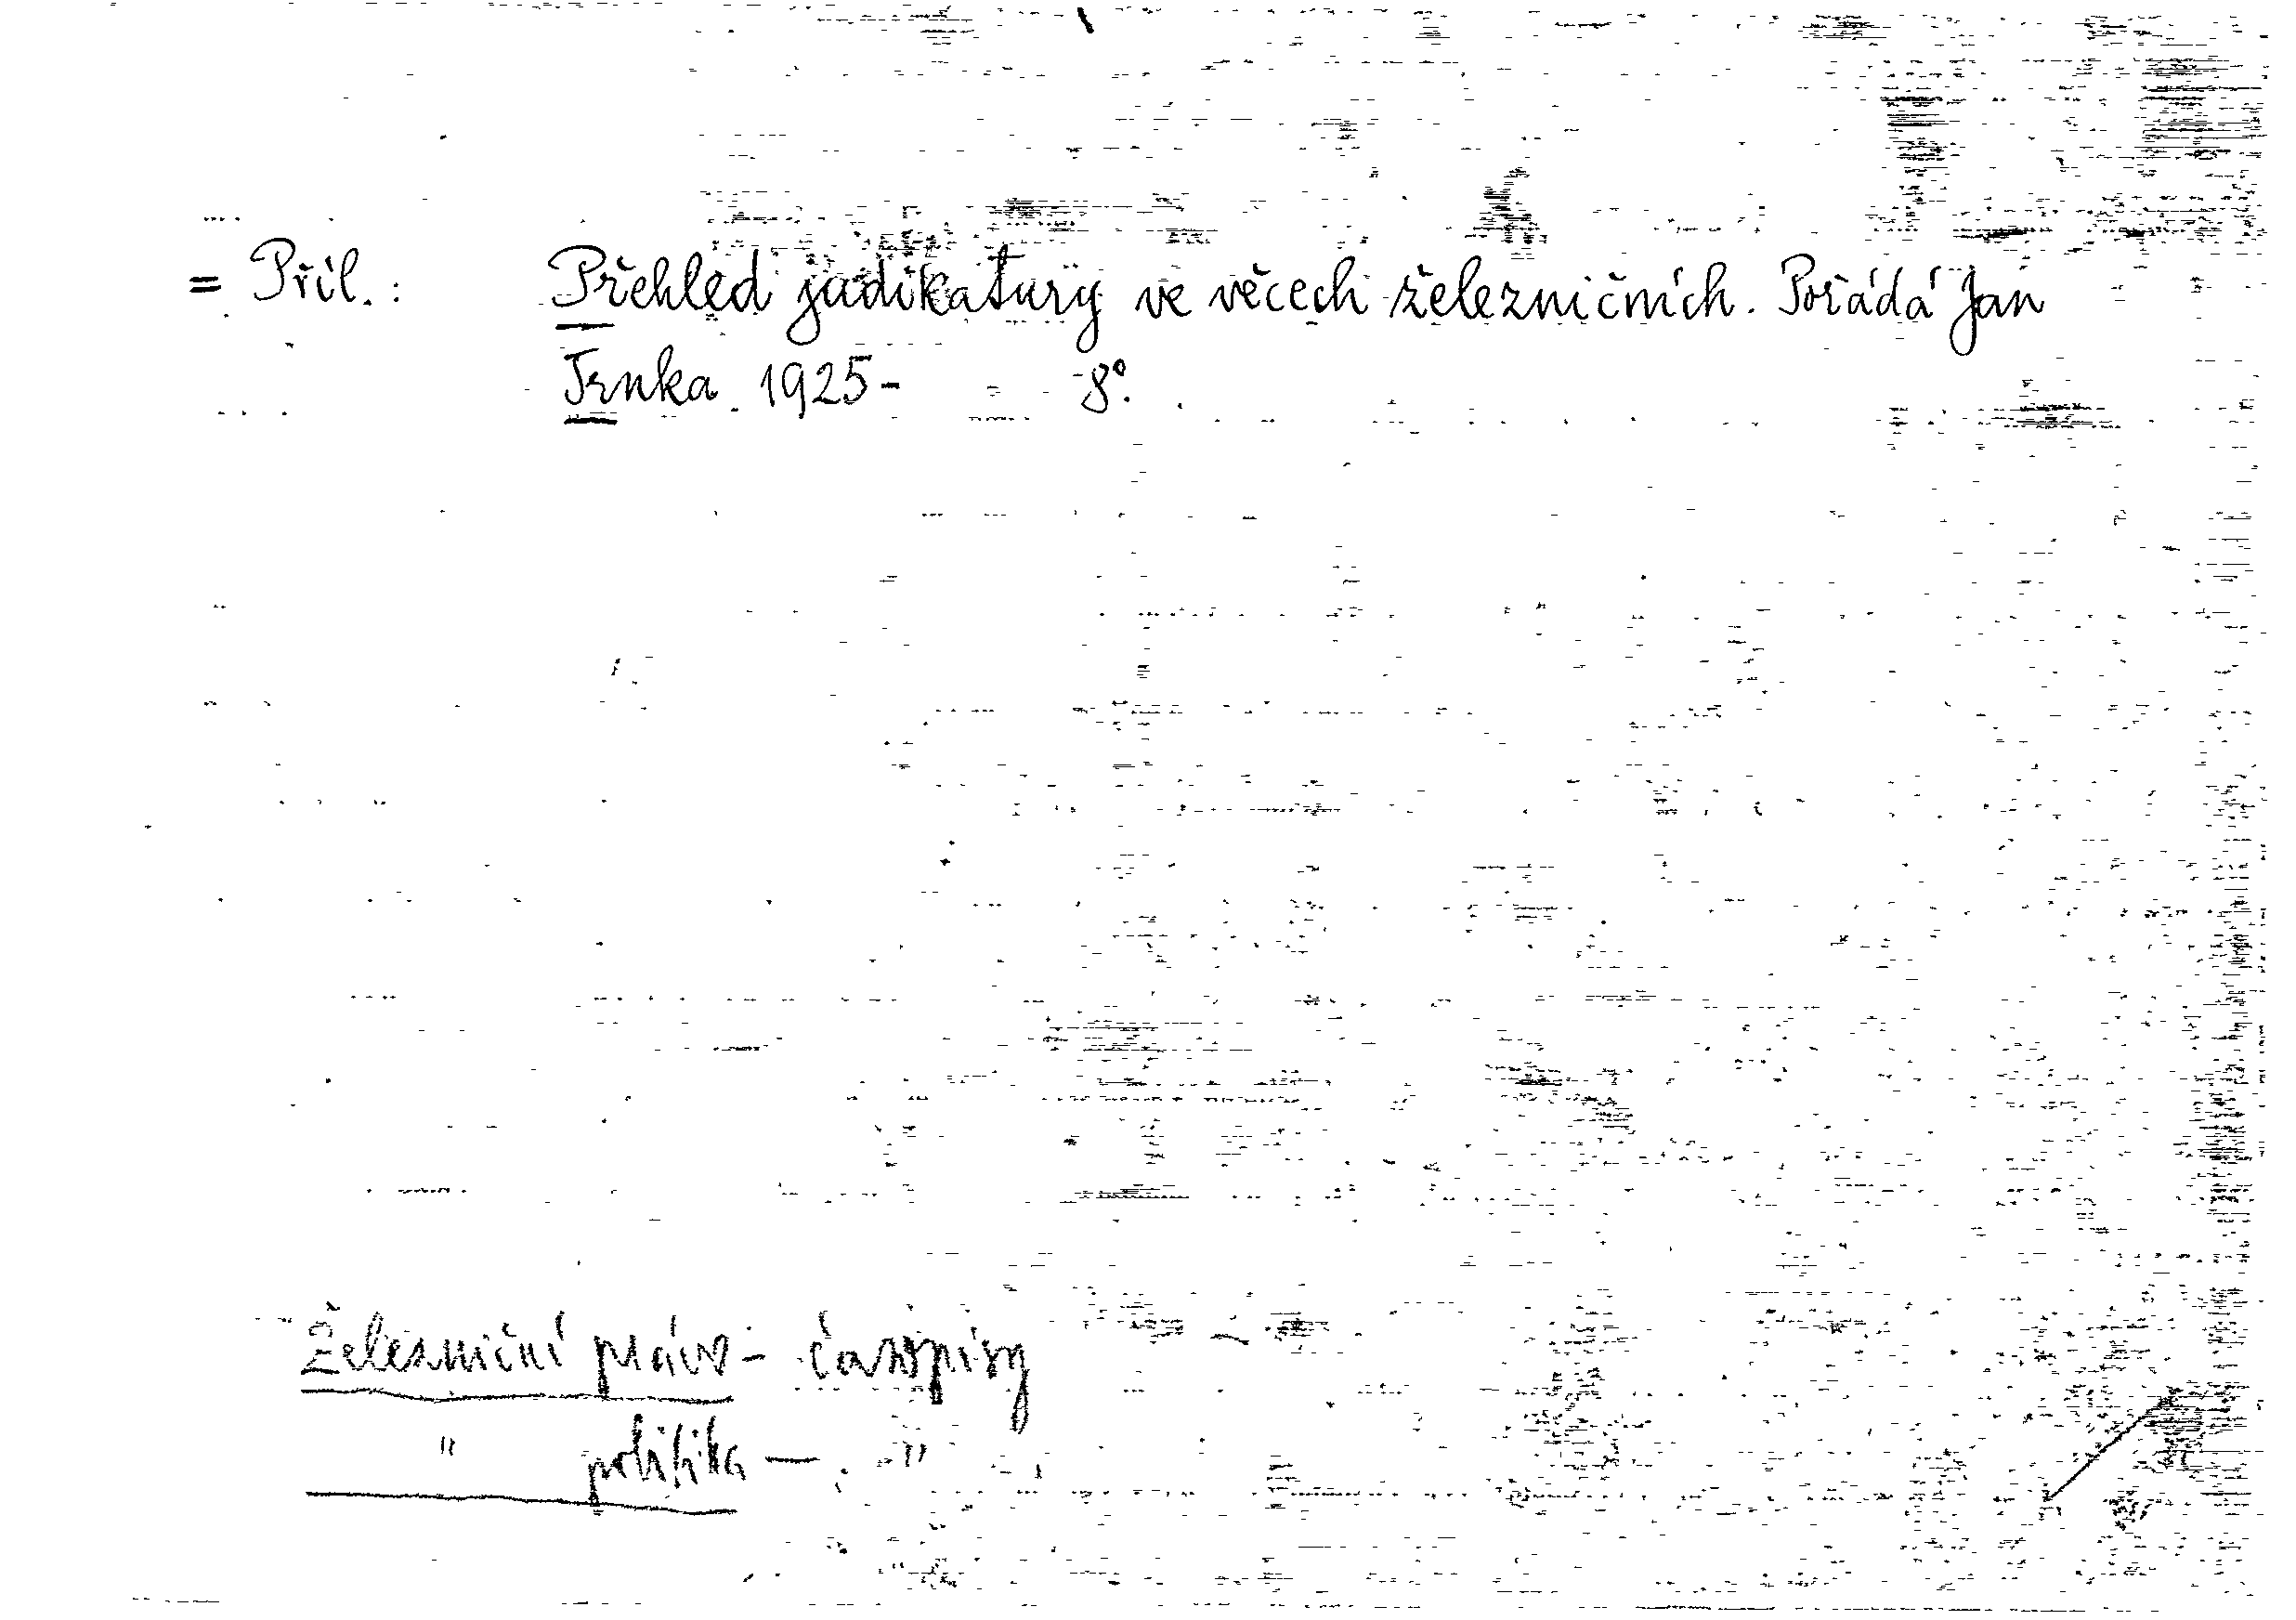 = Příl.: Přehled judikatury ve věcech železničních. Pořádá Jan
Trnka. 1925- 8°.
Železniční právo - časopisy
" politika - "